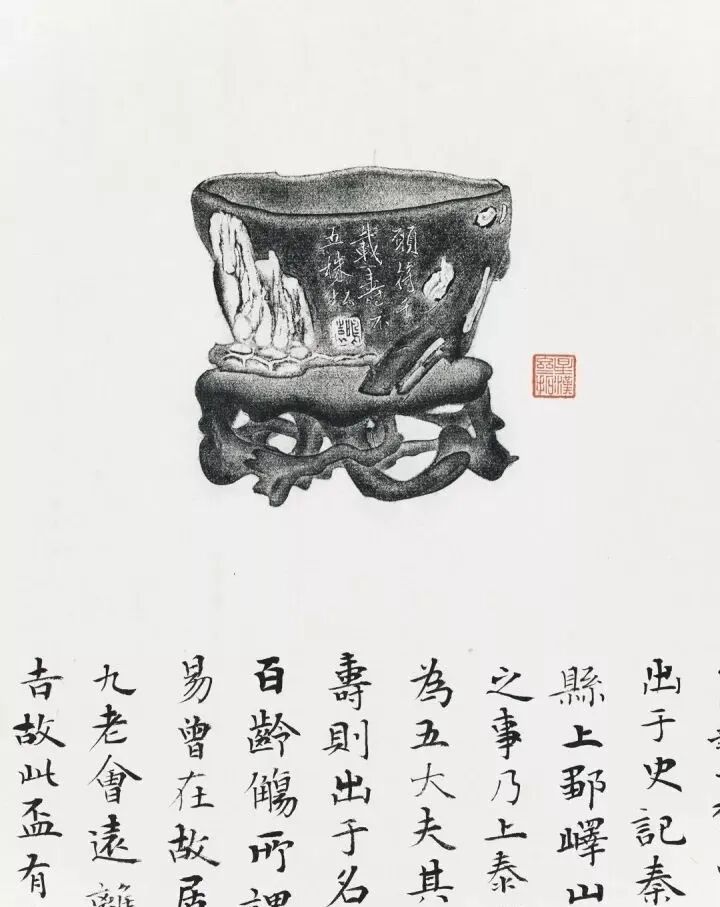 願符千
載壽不
五株松
出于史記秦
縣上鄒嶧山
之事乃上泰
為五大夫其
壽則出于名
百齡觴所謂
易曾在故居
九老會遠離
吉故此盃有